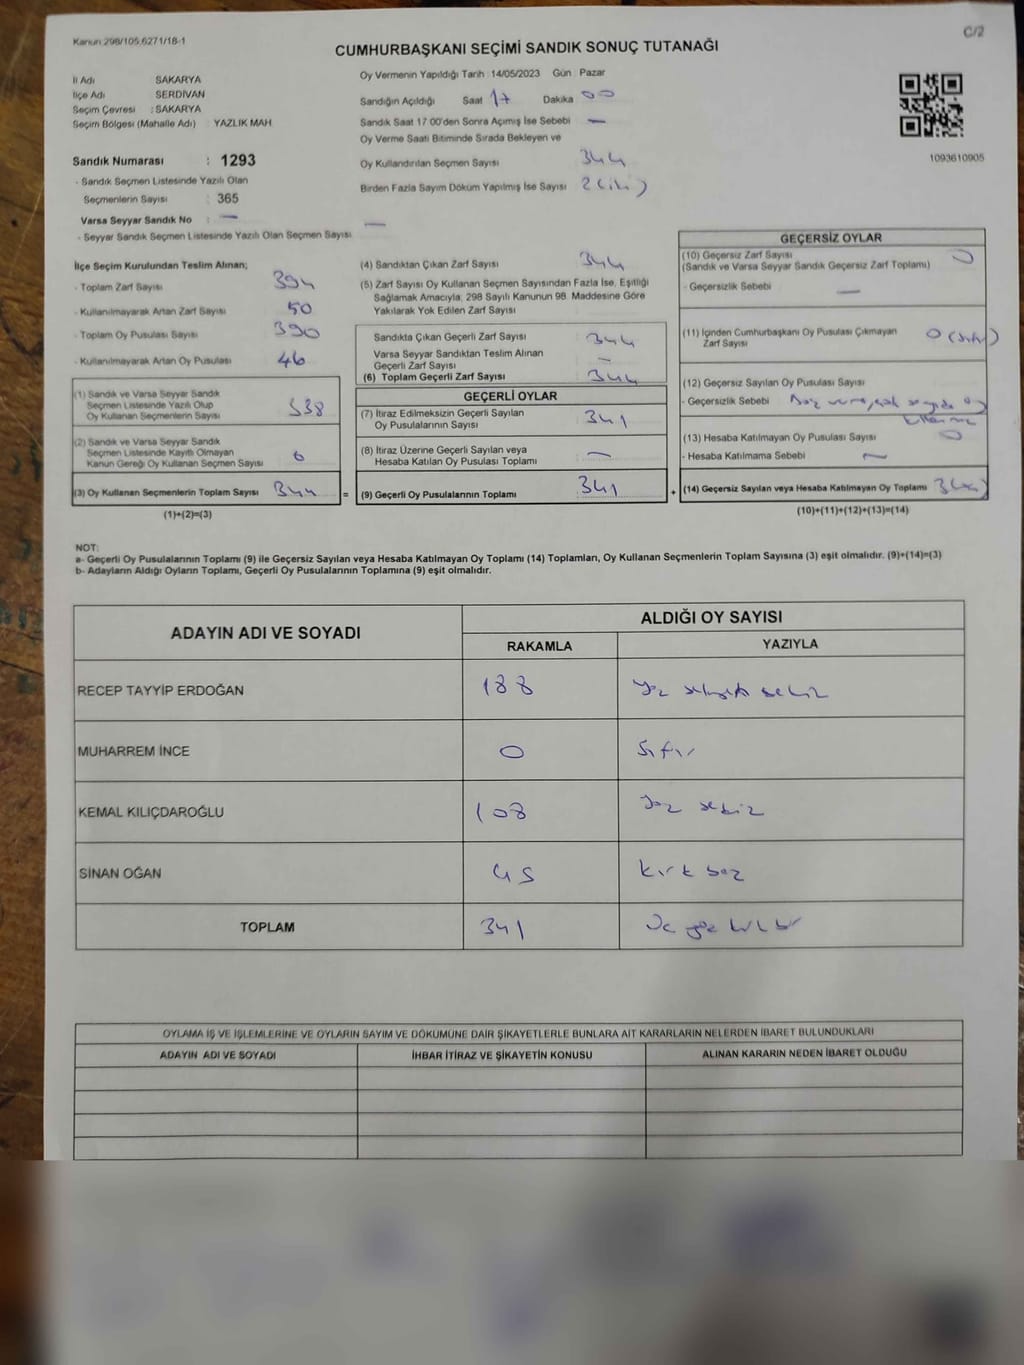 Kanun 298/105,6271/18-1
C/2
CUMHURBAŞKANI SEÇİMİ SANDIK SONUÇ TUTANAĞI
İl Adı SAKARYA
İlçe Adı SERDİVAN
Seçim Çevresi : SAKARYA
Seçim Bölgesi (Mahalle Adı) YAZLIK MAH.
Oy Vermenin Yapıldığı Tarih : 14/05/2023 Gün : Pazar
Sandığın Açıldığı Saat 17 Dakika 00
Sandık Saat 17:00'den Sonra Açılmış İse Sebebi —
Oy Verme Saati Bitiminde Sırada Bekleyen ve
Oy Kullandırılan Seçmen Sayısı 344
Birden Fazla Sayım Döküm Yapılmış İse Sayısı 2 (iki)
1093610905
Sandık Numarası : 1293
- Sandık Seçmen Listesinde Yazılı Olan
Seçmenlerin Sayısı : 365
Varsa Seyyar Sandık No : —
- Seyyar Sandık Seçmen Listesinde Yazılı Olan Seçmen Sayısı: —
İlçe Seçim Kurulundan Teslim Alınan;
- Toplam Zarf Sayısı 394
- Kullanılmayarak Artan Zarf Sayısı 50
- Toplam Oy Pusulası Sayısı 390
- Kullanılmayarak Artan Oy Pusulası 46
(1) Sandık ve Varsa Seyyar Sandık
Seçmen Listesinde Yazılı Olup
Oy Kullanan Seçmenlerin Sayısı 338
(2) Sandık ve Varsa Seyyar Sandık
Seçmen Listesinde Kayıtlı Olmayan
Kanun Gereği Oy Kullanan Seçmen Sayısı 6
(3) Oy Kullanan Seçmenlerin Toplam Sayısı 344 =
(1)+(2)=(3)
(4) Sandıktan Çıkan Zarf Sayısı 344
(5) Zarf Sayısı Oy Kullanan Seçmen Sayısından Fazla İse, Eşitliği
Sağlamak Amacıyla, 298 Sayılı Kanunun 98. Maddesine Göre
Yakılarak Yok Edilen Zarf Sayısı
Sandıkta Çıkan Geçerli Zarf Sayısı 344
Varsa Seyyar Sandıktan Teslim Alınan
Geçerli Zarf Sayısı —
(6) Toplam Geçerli Zarf Sayısı 344
GEÇERLİ OYLAR
(7) İtiraz Edilmeksizin Geçerli Sayılan
Oy Pusulalarının Sayısı 341
(8) İtiraz Üzerine Geçerli Sayılan veya
Hesaba Katılan Oy Pusulası Toplamı —
(9) Geçerli Oy Pusulalarının Toplamı 341 +
GEÇERSİZ OYLAR
(10) Geçersiz Zarf Sayısı 0
(Sandık ve Varsa Seyyar Sandık Geçersiz Zarf Toplamı)
- Geçersizlik Sebebi —
(11) İçinden Cumhurbaşkanı Oy Pusulası Çıkmayan 0 (sıfır)
Zarf Sayısı
(12) Geçersiz Sayılan Oy Pusulası Sayısı
- Geçersizlik Sebebi
(13) Hesaba Katılmayan Oy Pusulası Sayısı 0
- Hesaba Katılmama Sebebi —
(14) Geçersiz Sayılan veya Hesaba Katılmayan Oy Toplamı 3 (üç)
(10)+(11)+(12)+(13)=(14)
NOT:
a- Geçerli Oy Pusulalarının Toplamı (9) ile Geçersiz Sayılan veya Hesaba Katılmayan Oy Toplamı (14) Toplamları, Oy Kullanan Seçmenlerin Toplam Sayısına (3) eşit olmalıdır. (9)+(14)=(3)
b- Adayların Aldığı Oyların Toplamı, Geçerli Oy Pusulalarının Toplamına (9) eşit olmalıdır.
ADAYIN ADI VE SOYADI ALDIĞI OY SAYISI
RAKAMLA YAZIYLA
RECEP TAYYİP ERDOĞAN 188 Yüz seksen sekiz
MUHARREM İNCE 0 Sıfır
KEMAL KILIÇDAROĞLU 108 Yüz sekiz
SİNAN OĞAN 45 Kırk beş
TOPLAM 341 Üç yüz kırk bir
OYLAMA İŞ VE İŞLEMLERİNE VE OYLARIN SAYIM VE DÖKÜMÜNE DAİR ŞİKAYETLERLE BUNLARA AİT KARARLARIN NELERDEN İBARET BULUNDUKLARI
ADAYIN ADI VE SOYADI İHBAR İTİRAZ VE ŞİKAYETİN KONUSU ALINAN KARARIN NEDEN İBARET OLDUĞU